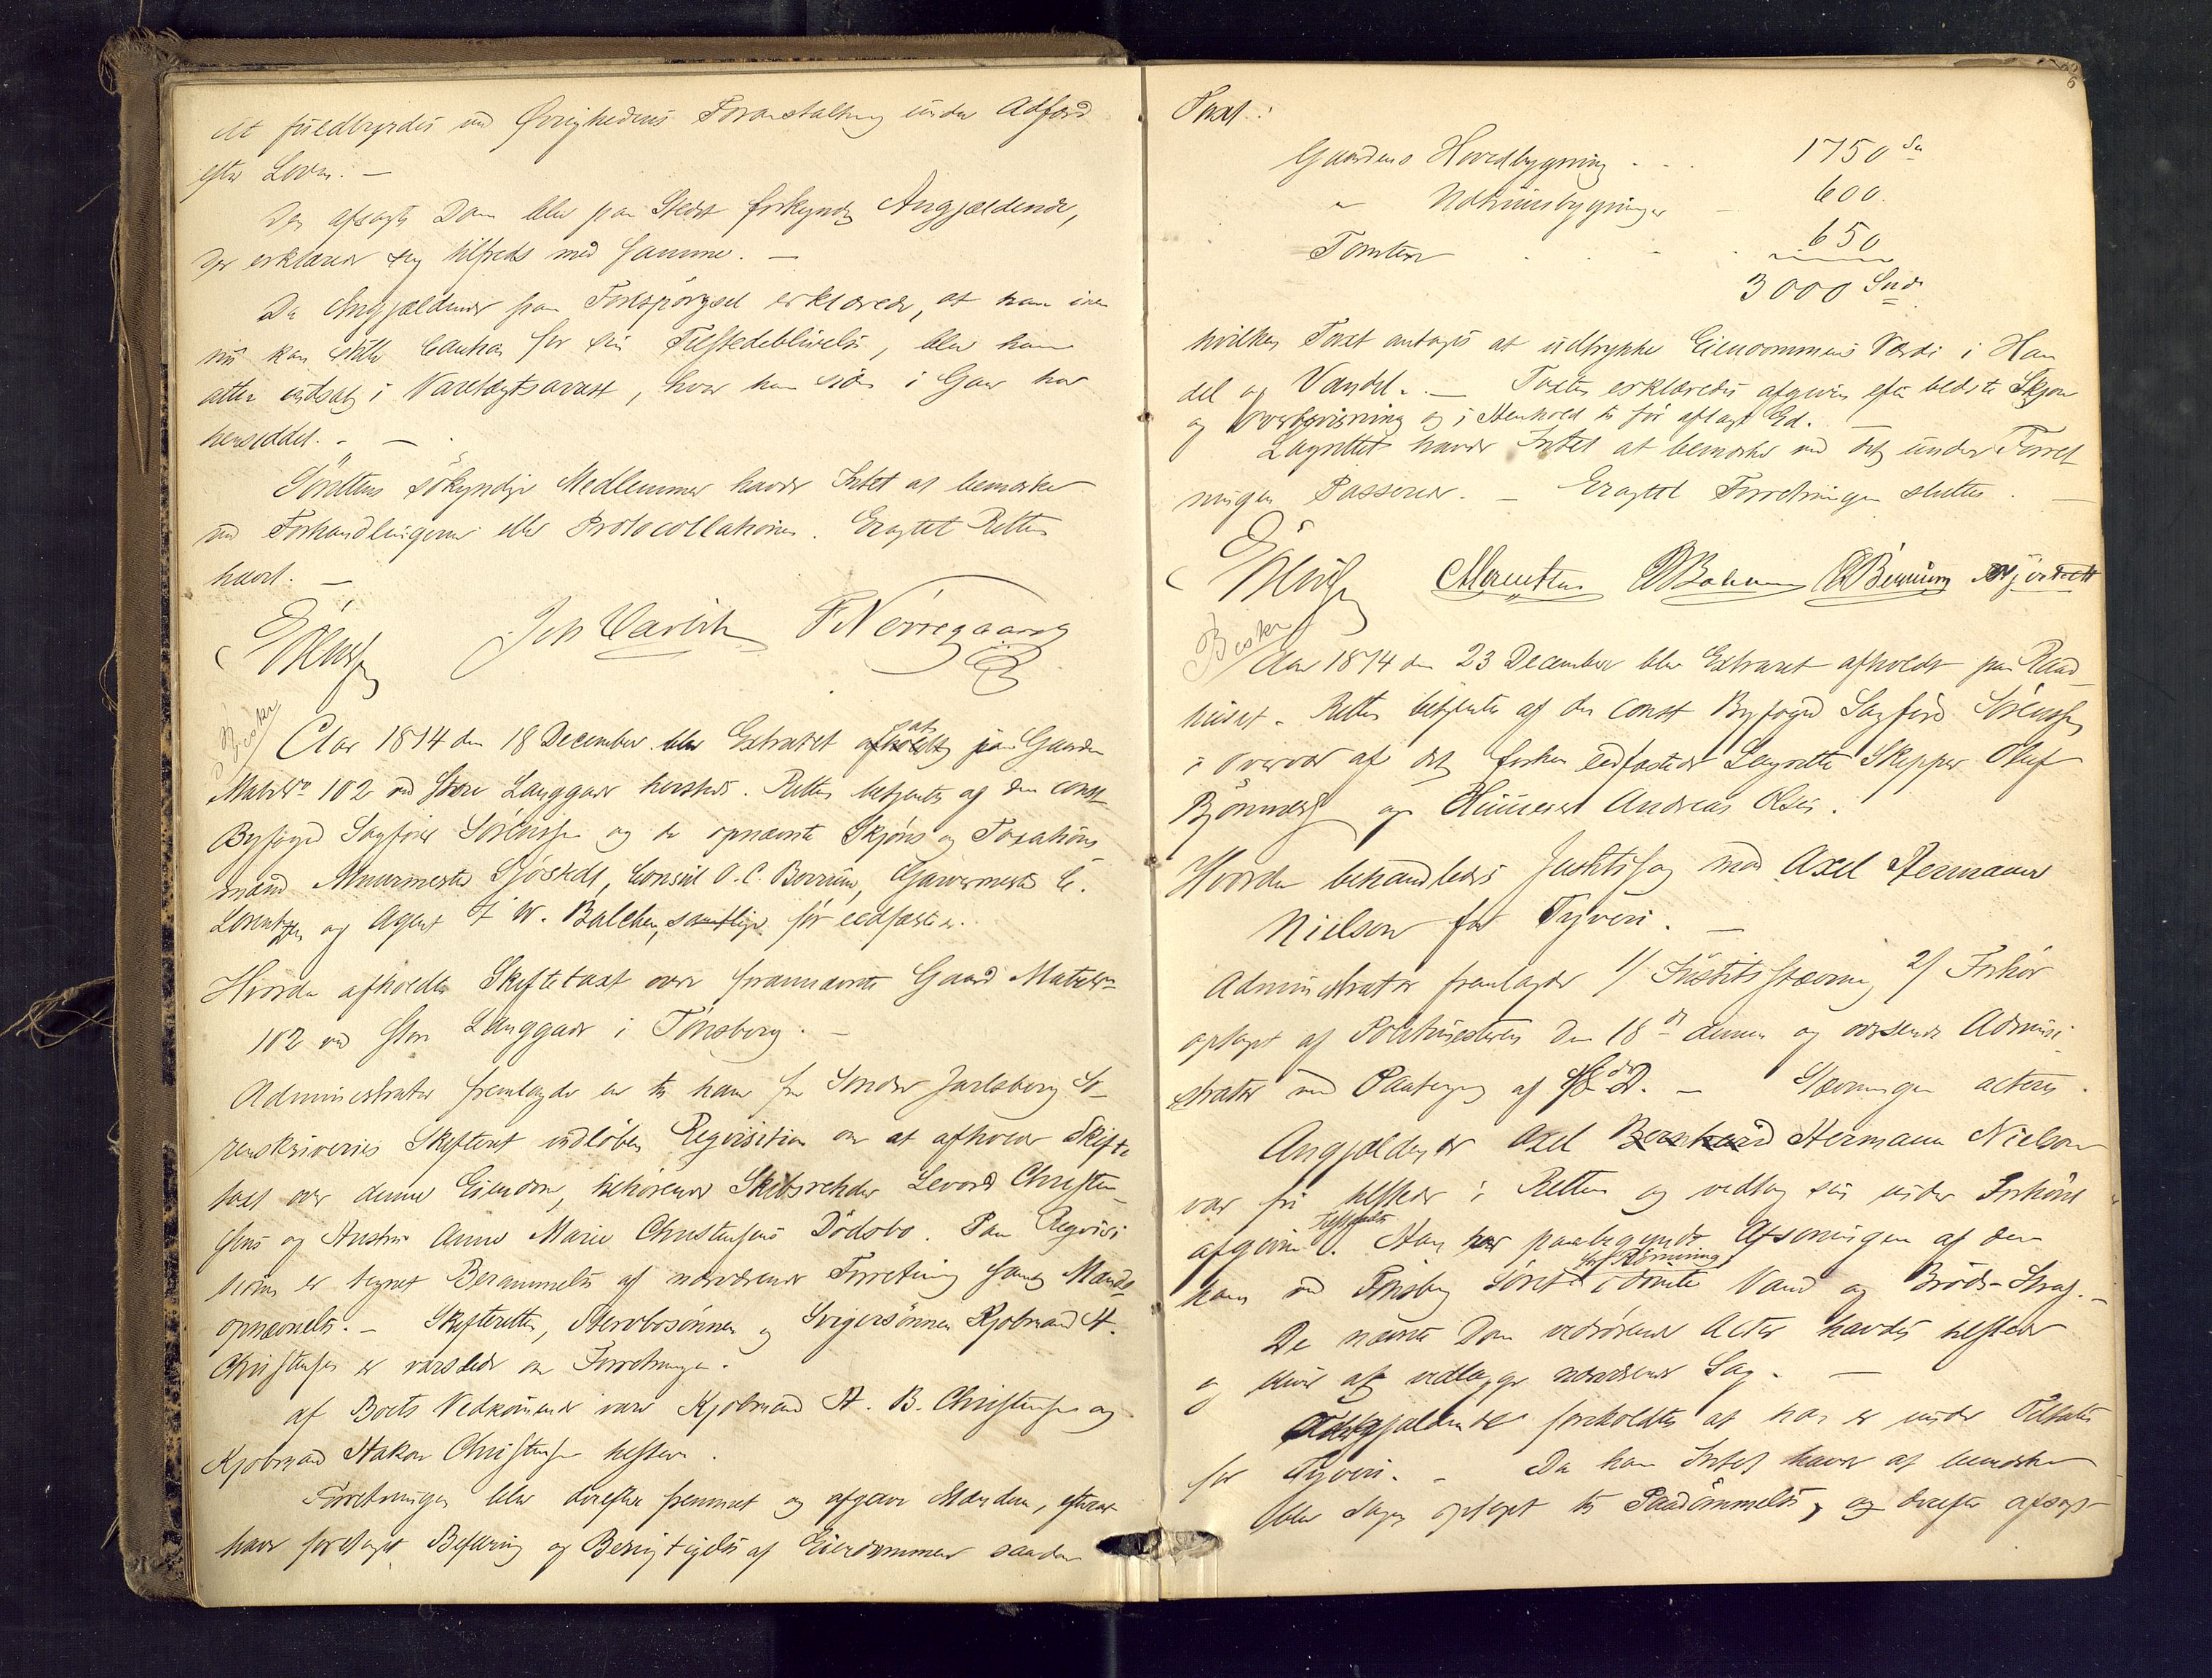 At fuldbyrdes ved Øvrighedens Foranstaltning under Adfærd
efter Loven. —
Den afsagte Dom blev paa Stedet forkyndt Angjældende,
der erklærede sig tilfreds med samme. —
Da Angjældende paa Forespörgsel erklærede, at han ikke
nu kan stille Caution for sin Tilstedeblivelse, blev han
atter indsat i Varetægtsarrest, hvor han siden i Gaar har
hensiddet. —
Sörettens sökyndige Medlemmer havde Intet at bemærke
ved Forhandlingerne eller Protocollationen. Eragtet Retten
hævet. —
F Nörregaard
Beskr
Aar 1874 den 18 December blev Extraret sat paa Gaarden
Matr No 102 ved Store Langgade hersteds. Retten betjentes af den const
Byfoged Sagförer Sörensen og de opnævnte Skjöns og Taxations
mænd Murmester Sjöstedt, Consul O. C. Borrum, Garvermester C.
Lorentzen og Agent F W. Balchen, samtlige för eedfæstede.
Hvorda afholdtes Skiftetaxt over forannævnte Gaard Matr No
102 ved Store Langgade i Tönsberg. —
Administrator fremlagde en til ham fra Söndre Jarlsberg So-
renskriveries Skifteret indlöben Reqvisition om at afholde Skifte
taxt over denne Eiendom, tilhörende Skibsreder Levord Christen-
sens og Hustru Anne Marie Christensens Dödsbo. Paa Reqvisi
tionen er tegnet Berammelse af nærværende Forretning samt Mænds
opnævnelse. — Skifteretten, Stervbosönnen og Svigersönnen Kjöbmand H.
Christensen er varslede om Forretningen.
af Boets Vedkommende vare Kjöbmand H. B. Christensen og
Kjöbmand Hakon Christensen tilstede.
Forretningen blev derefter fremmet og afgave Mændene, efterat
have foretaget Befaring og Besigtigelse af Eiendommene saadan
6
Taxt:
Gaardens Hovedbygning . . . 1750 Sp
" Udhuusbygninger — 600.
Tomten . . — . 650
3000 Spd
hvilken Taxt antages at udtrykke Eiendommens Værdi i Han
del og Vandel. — Taxten erklæredes afgiven efter bedste Skjön
og Overbevisning og i Henhold til för aflagt Ed.
Lagrettet havde Intet at bemærke ved det under Forret
ningen Passerede. — Eragtet Forretningen sluttet. —
Beskr
Aar 1874 den 23 December blev Extraret afholdt paa Raad
huset. Retten betjentes af den const Byfoged Sagförer Sörensen
i Overvær af det forhen eedfæstede Lagrette Skipper Oluf
Björnness og Huuseier Andreas Olsen.
Hvorda behandledes Justitssag mod Axel Hermann
Nielsen for Tyveri. —
Administrator fremlagde 1/ Justitsstævning 2/ Forhör
optaget af Politimesteren den 18de dennes og oversendt Admini
strator med Paategning af s. D. — Stævningen acteres.
Angjældende Axel Hermann Nielsen
var fri tilstede i Retten og vedtog sin under Forhöret
afgivne Tilstaaelse. Han har paabegyndt Afsoningen af den
ham ved Tönsberg Söret idömte Vand og Bröds-Straf. —
De nævnte Dom vedrörende Acter havdes tilstede
og bliver at vedlægge nærværende Sag. —
Angjældende foreholdtes at han er under Tiltale
for Tyveri. — Da han Intet havde at bemærke
blev Sagen optaget til Paadömmelse, og derefter afsagt